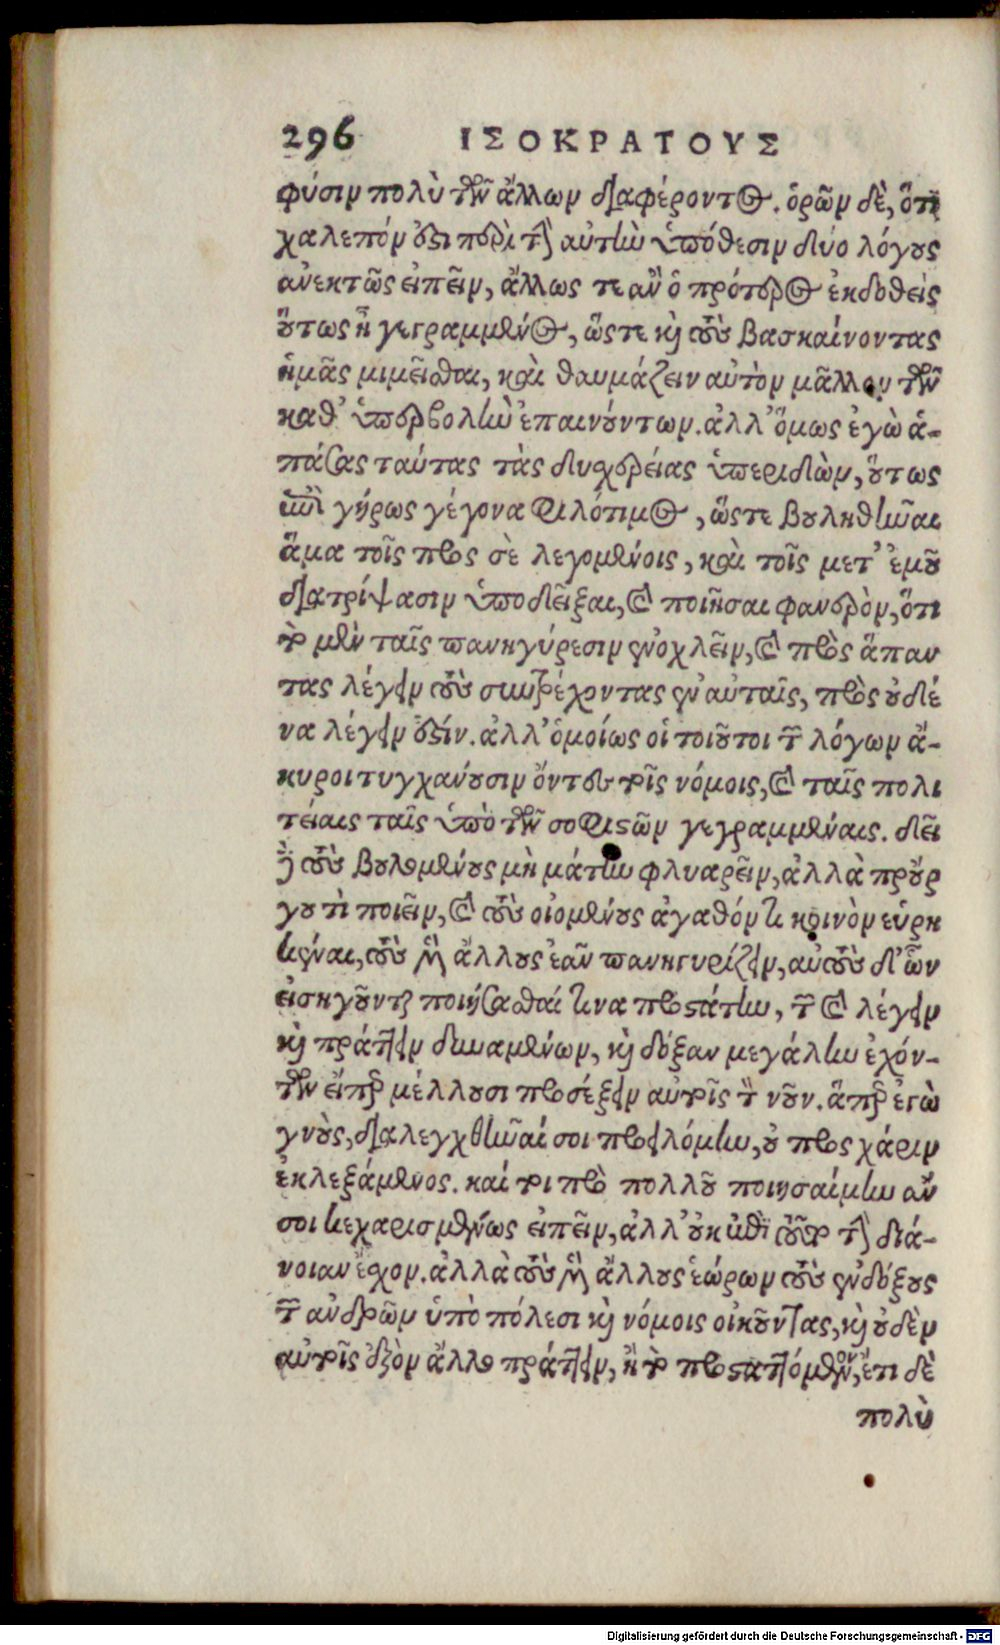 296 ΙΣΟΚΡΑΤΟΥΣ
φύσιν πολὺ τῶν ἄλλων διαφέροντος. ὁρῶν δὲ, ὅτι
χαλεπόν ἐστι περὶ τὴν αὐτὴν ὑπόθεσιν δύο λόγους
ἀνεκτῶς εἰπεῖν, ἄλλως τε ἂν ὁ πρότερος ἐκδοθεὶς
οὕτως ᾖ γεγραμμένος, ὥστε καὶ τοὺς βασκαίνοντας
ἡμᾶς μιμεῖσθαι, καὶ θαυμάζειν αὐτὸν μᾶλλον τῶν
καθ' ὑπερβολὴν ἐπαινούντων. ἀλλ' ὅμως ἐγὼ ἁ-
πάσας ταύτας τὰς δυσχερείας ὑπεριδὼν, οὕτως
ἐπὶ γήρως γέγονα φιλότιμος, ὥστε βουληθῆναι
ἅμα τοῖς πρὸς σὲ λεγομένοις, καὶ τοῖς μετ' ἐμοῦ
διατρίψασιν ὑποδεῖξαι, καὶ ποιῆσαι φανερὸν, ὅτι
τὸ μὲν ταῖς πανηγύρεσιν ἐνοχλεῖν, καὶ πρὸς ἅπαν
τας λέγειν τοὺς συντρέχοντας ἐν αὐταῖς, πρὸς οὐδέ
να λέγειν ἐστίν. ἀλλ' ὁμοίως οἱ τοιοῦτοι τῶν λόγων ἄ-
κυροι τυγχάνουσιν ὄντες τοῖς νόμοις, καὶ ταῖς πολι
τείαις ταῖς ὑπὸ τῶν σοφιστῶν γεγραμμέναις. δεῖ
δὲ τοὺς βουλομένους μὴ μάτην φλυαρεῖν, ἀλλὰ προὔρ
γου τὶ ποιεῖν, καὶ τοὺς οἰομένους ἀγαθόν τι κοινὸν εὑρη
κέναι, τοὺς μὲν ἄλλους ἐᾶν πανηγυρίζειν, αὐτοὺς δ' ὧν
εἰσηγοῦνται ποιήσασθαί τινα προστάτην, τῶν καὶ λέγειν
καὶ πράττειν δυναμένων, καὶ δόξαν μεγάλην ἐχόν-
των εἴπερ μέλλουσι προσέξειν αὐτοῖς τὸν νοῦν. ἅπερ ἐγὼ
γνοὺς, διαλεγχθῆναί σοι προειλόμην, οὐ πρὸς χάριν
ἐκλεξάμενος. καί τοι πρὸ πολλοῦ ποιησαίμην ἄν
σοι κεχαρισμένως εἰπεῖν, ἀλλ' οὐκ ἐπὶ τούτῳ τὴν διά-
νοιαν ἔσχον. ἀλλὰ τοὺς μὲν ἄλλους ἑώρων τοὺς ἐνδόξους
τῶν ἀνδρῶν ὑπὸ πόλεσι καὶ νόμοις οἰκοῦντας, καὶ οὐδὲν
αὐτοῖς ἐξὸν ἄλλο πράττειν, ἢ τὸ προσταττόμενον, ἔτι δὲ
πολὺ
Digitalisierung gefördert durch die Deutsche Forschungsgemeinschaft - DFG